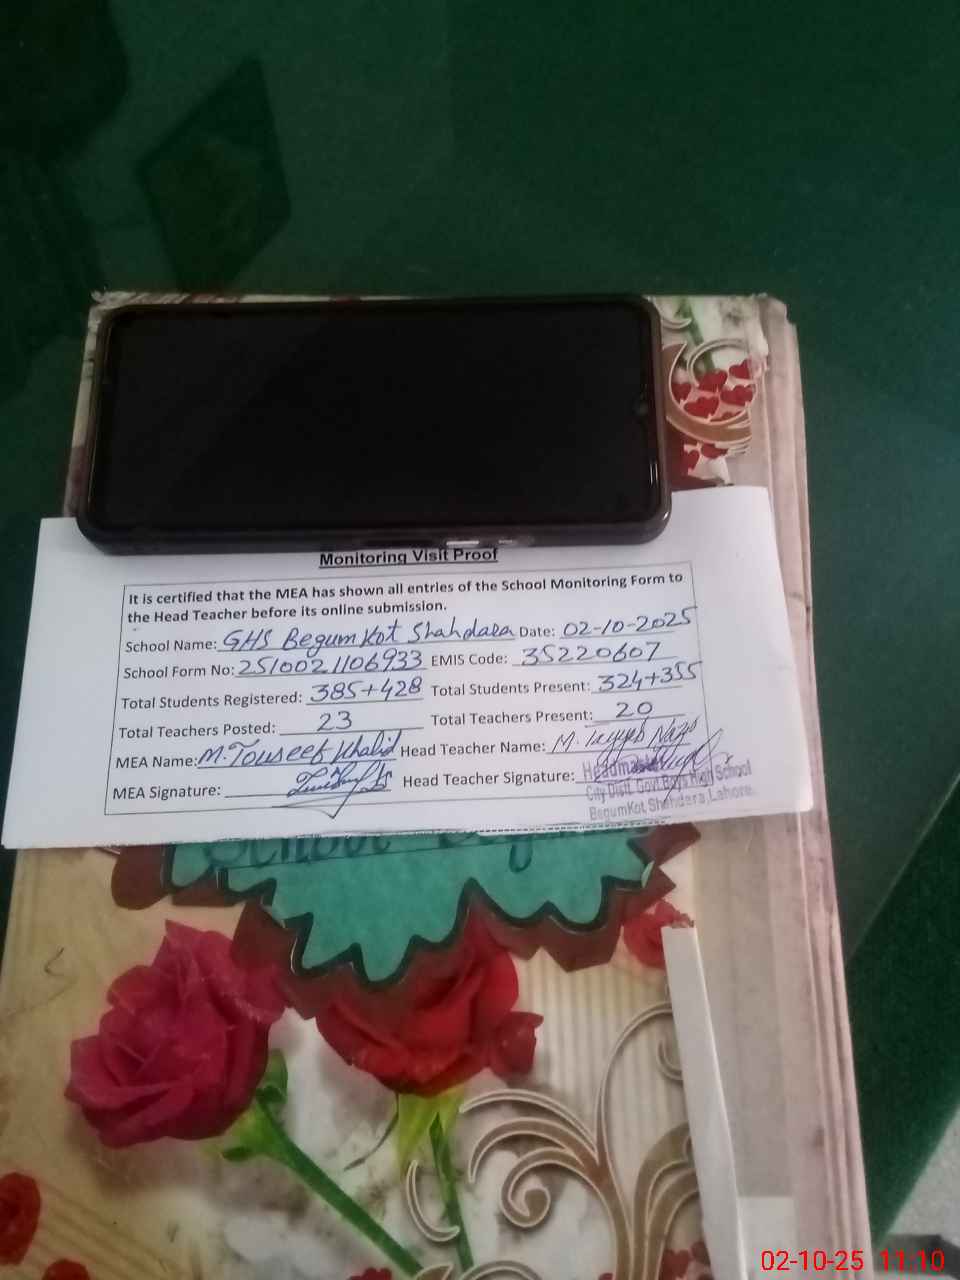 Monitoring Visit Proof
It is certified that the MEA has shown all entries of the School Monitoring Form to
the Head Teacher before its online submission.
School Name: GHS Begum Kot Shahdara Date: 02-10-2025
School Form No: 2510021106933 EMIS Code: 35220607
Total Students Registered: 385+428 Total Students Present: 324+355
Total Teachers Posted: 23 Total Teachers Present: 20
MEA Name: M. Touseef Khalid Head Teacher Name: M. Tayyab
MEA Signature: Head Teacher Signature:
Headmaster
City Distt. Govt Boys High School
BegumKot, Shahdara, Lahore.
School
02-10-25 11:10